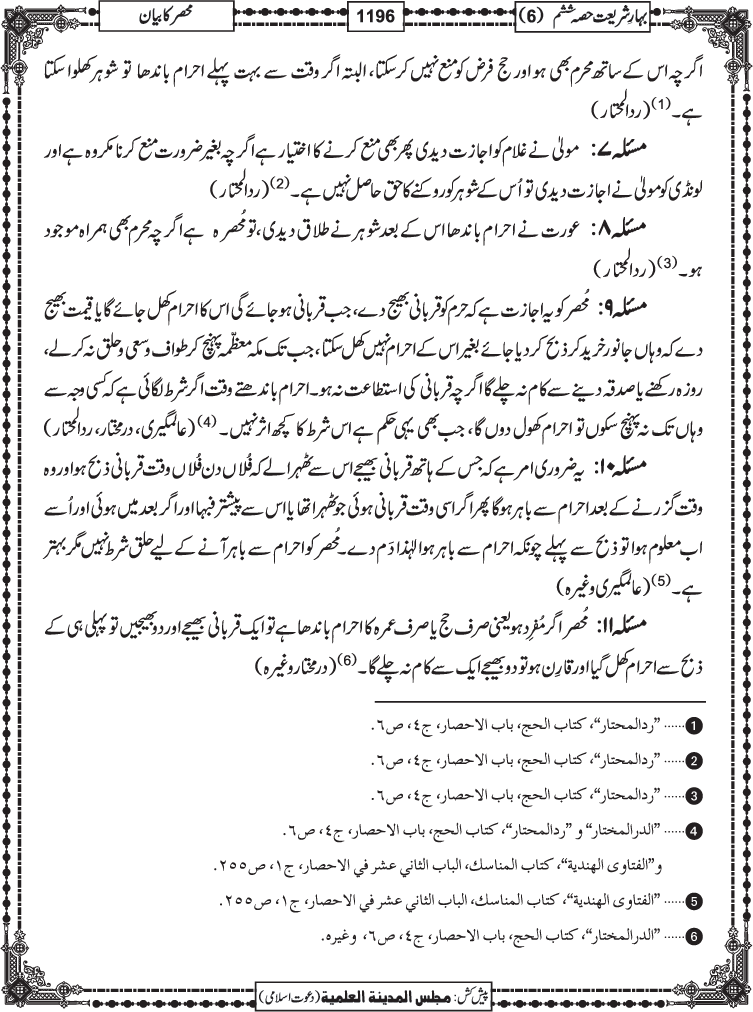 بہارِ شریعت حصہ ششم (6)
1196
محصر کا بیان
اگرچہ اس کے ساتھ محرم بھی ہو اور حج فرض کو منع نہیں کرسکتا، البتہ اگر وقت سے بہت پہلے احرام باندھا تو شوہر کھلوا سکتا
ہے۔(1) (ردالمحتار)
مسئلہ ۷: مولیٰ نے غلام کو اجازت دیدی پھر بھی منع کرنے کا اختیار ہے اگرچہ بغیر ضرورت منع کرنا مکروہ ہے اور
لونڈی کو مولیٰ نے اجازت دیدی تو اُس کے شوہر کو روکنے کا حق حاصل نہیں ہے۔(2) (ردالمحتار)
مسئلہ ۸: عورت نے احرام باندھا اس کے بعد شوہر نے طلاق دیدی، تو مُحصرہ ہے اگرچہ محرم بھی ہمراہ موجود
ہو۔(3) (ردالمحتار)
مسئلہ ۹: مُحصر کو یہ اجازت ہے کہ حرم کو قربانی بھیج دے، جب قربانی ہو جائے گی اس کا احرام کھل جائے گا یا قیمت بھیج
دے کہ وہاں جانور خرید کر ذبح کر دیا جائے بغیر اس کے احرام نہیں کھل سکتا، جب تک مکہ معظّمہ پہنچ کر طواف و سعی و حلق نہ کر لے،
روزہ رکھنے یا صدقہ دینے سے کام نہ چلے گا اگرچہ قربانی کی استطاعت نہ ہو۔ احرام باندھتے وقت اگر شرط لگائی ہے کہ کسی وجہ سے
وہاں تک نہ پہنچ سکوں تو احرام کھول دوں گا، جب بھی یہی حکم ہے اس شرط کا کچھ اثر نہیں۔(4) (عالمگیری، درمختار، ردالمحتار)
مسئلہ ۱۰: یہ ضروری امر ہے کہ جس کے ہاتھ قربانی بھیجے اس سے ٹھہرا لے کہ فُلاں دن فُلاں وقت قربانی ذبح ہو اور وہ
وقت گزرنے کے بعد احرام سے باہر ہوگا پھر اگر اسی وقت قربانی ہوئی جو ٹھہرا تھا یا اس سے پیشتر فبہا اور اگر بعد میں ہوئی اور اُسے
اب معلوم ہوا تو ذبح سے پہلے چونکہ احرام سے باہر ہوا لہٰذا دَم دے۔ مُحصر کو احرام سے باہر آنے کے لیے حلق شرط نہیں مگر بہتر
ہے۔(5) (عالمگیری وغیرہ)
مسئلہ ۱۱: مُحصر اگر مُفرِد ہو یعنی صرف حج یا صرف عمرہ کا احرام باندھا ہے تو ایک قربانی بھیجے اور دو بھیجیں تو پہلی ہی کے
ذبح سے احرام کھل گیا اور قارِن ہو تو دو بھیجے ایک سے کام نہ چلے گا۔(6) (درمختار وغیرہ)
1 ...... ”ردالمحتار“، كتاب الحج، باب الاحصار، ج٤، ص٦.
2 ...... ”ردالمحتار“، كتاب الحج، باب الاحصار، ج٤، ص٦.
3 ...... ”ردالمحتار“، كتاب الحج، باب الاحصار، ج٤، ص٦.
4 ...... ”الدرالمختار“ و ”ردالمحتار“، كتاب الحج، باب الاحصار، ج٤، ص٦.
و”الفتاوى الهندية“، كتاب المناسك، الباب الثاني عشر في الاحصار، ج١، ص٢٥٥.
5 ...... ”الفتاوى الهندية“، كتاب المناسك، الباب الثاني عشر في الاحصار، ج١، ص٢٥٥.
6 ...... ”الدرالمختار“، كتاب الحج، باب الاحصار، ج٤، ص٦، وغيره.
پیش کش: مجلس المدينة العلمية (دعوت اسلامی)